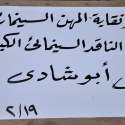 نقابة المهن السينمائية
الناقد السينمائى الكبير
أبو شادى
٢/١٩